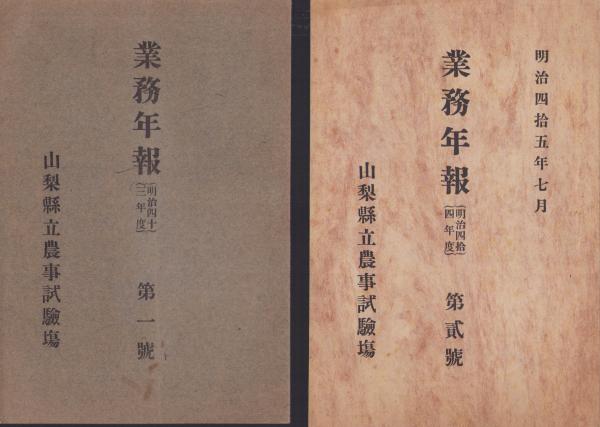 業務年報(明治四十三年度) 第一號
山梨縣立農事試驗塲
明治四拾五年七月
業務年報(明治四拾四年度) 第貳號
山梨縣立農事試驗塲